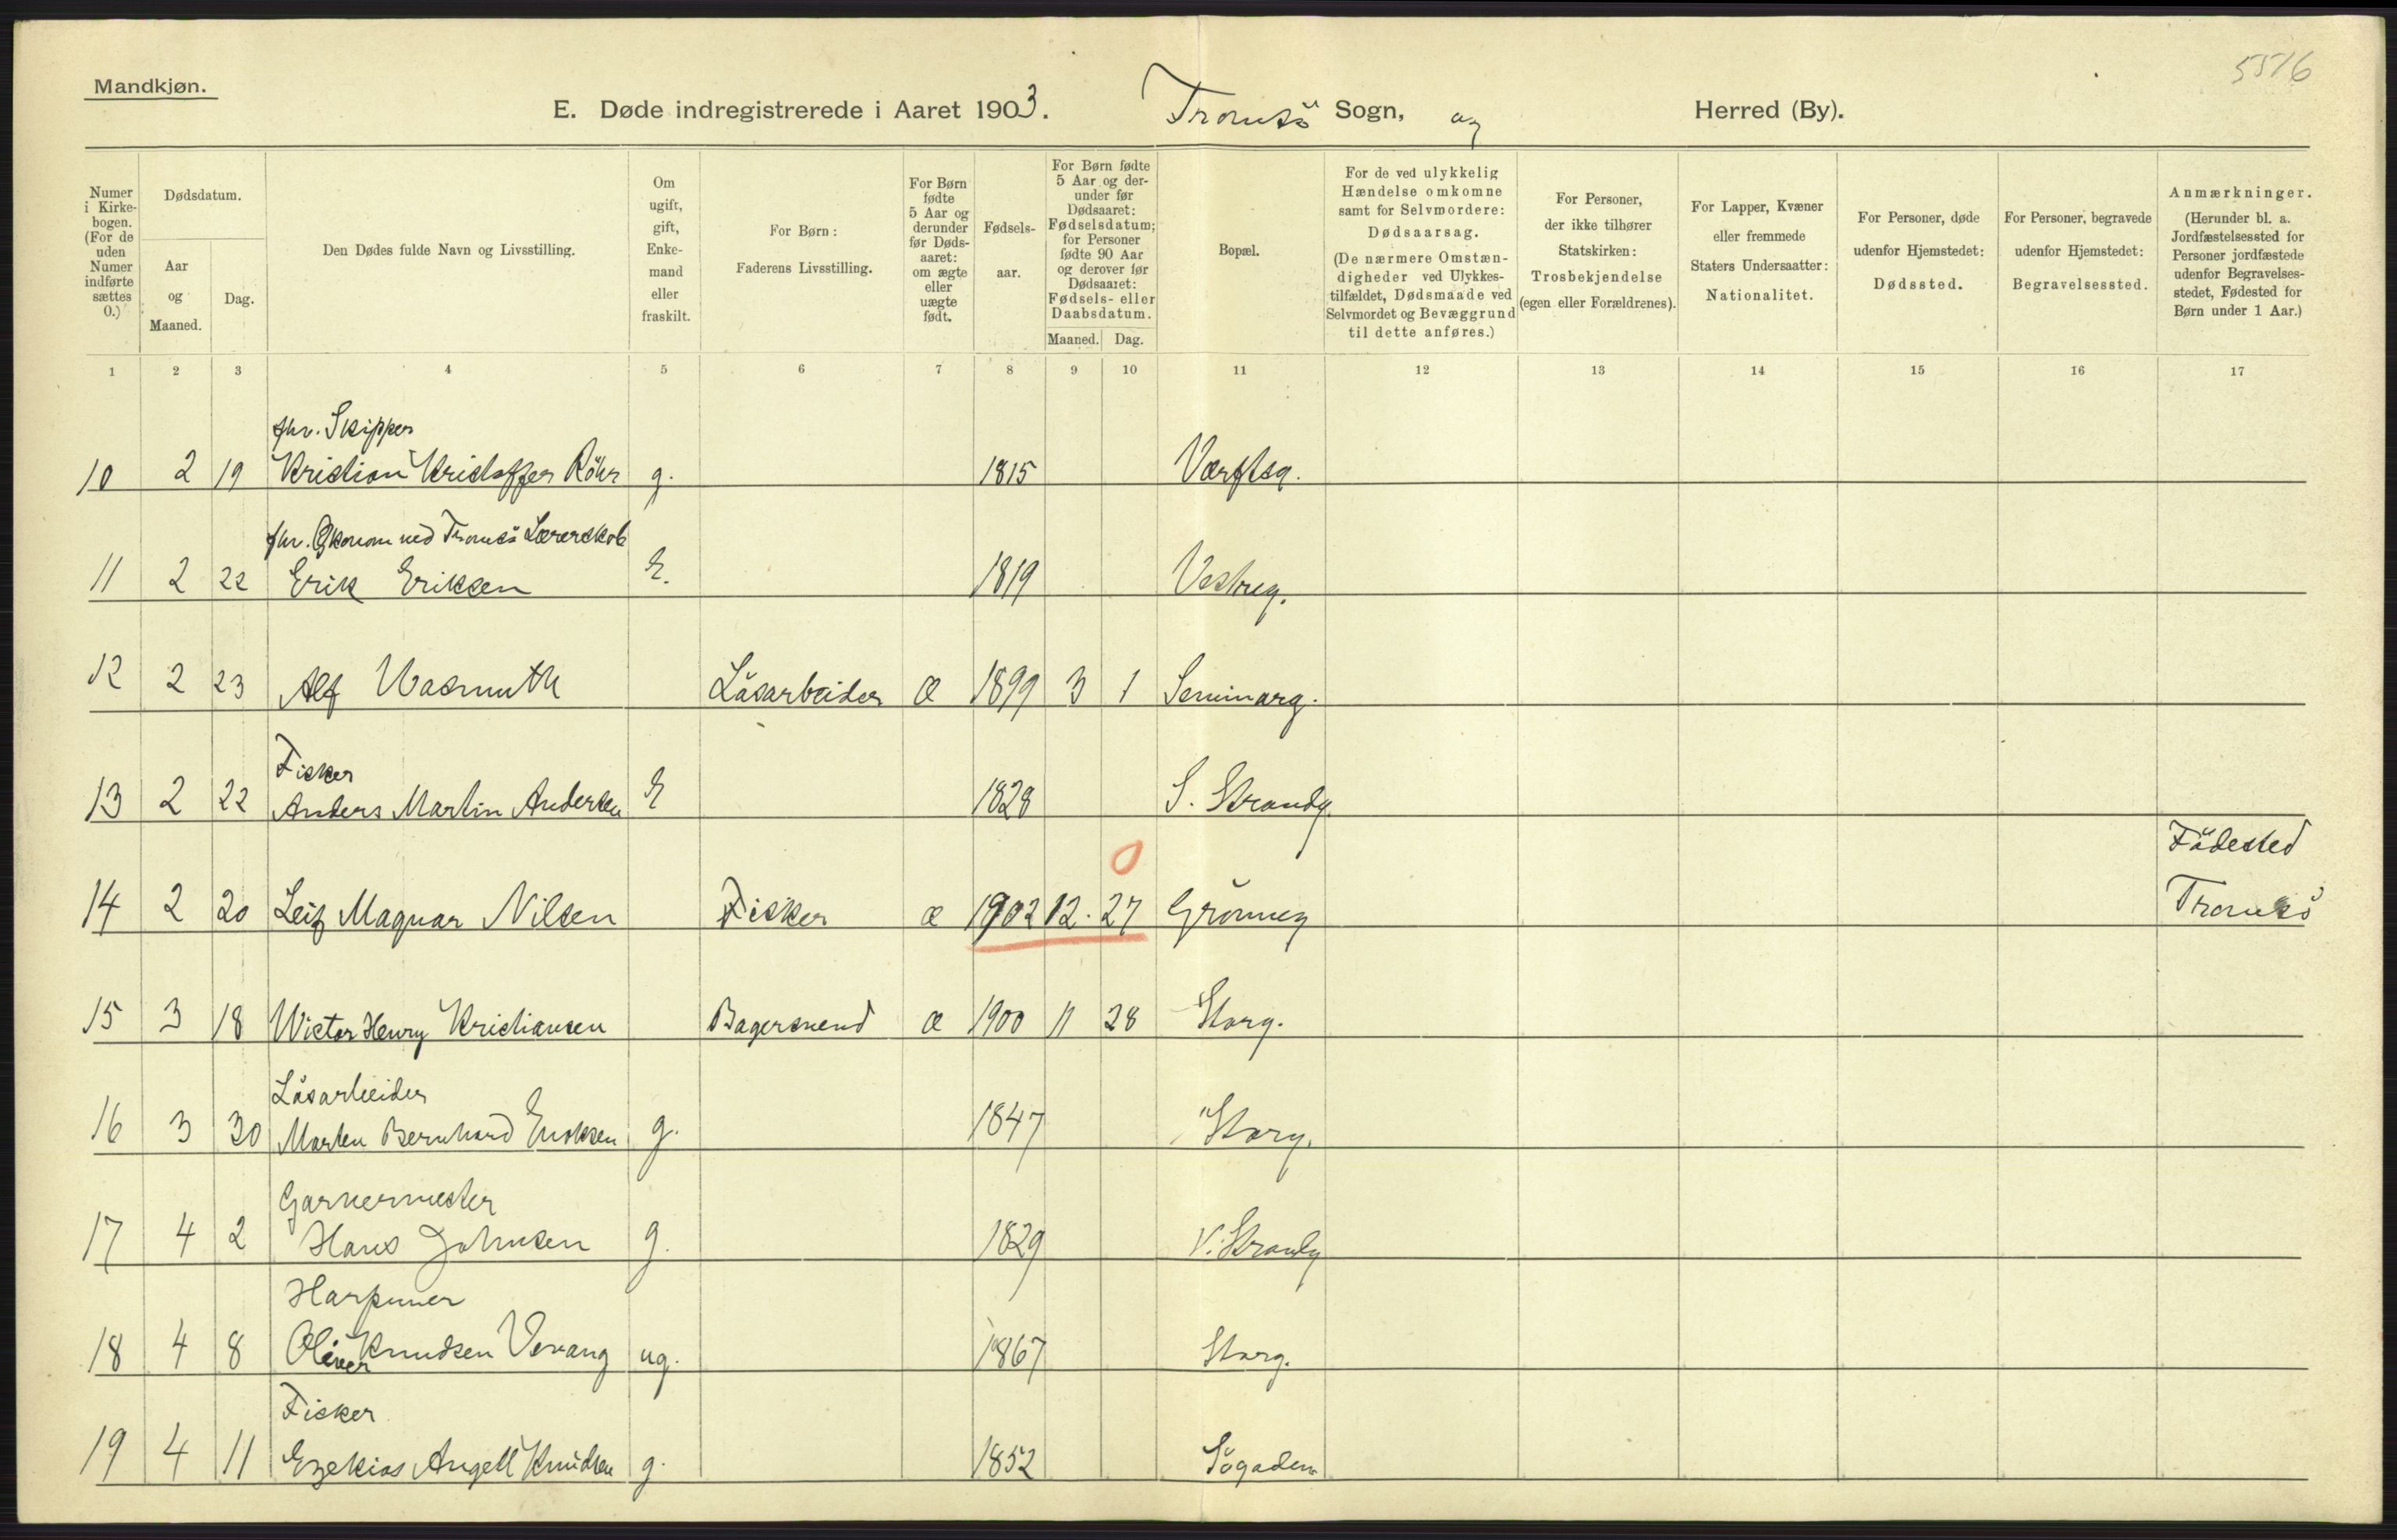 5516
Mandkjøn.
E. Døde indregistrerede i Aaret 1903. Tromsö Sogn, og Herred (By).
Numer i Kirkebogen. (For de uden Numer indførte sættes 0.)
Dødsdatum.
Aar og Maaned.
Dag.
Den Dødes fulde Navn og Livsstilling.
Om ugift, gift, Enkemand eller fraskilt.
For Børn: Faderens Livsstilling.
For Børn fødte 5 Aar og derunder før Dødsaaret: om ægte eller uægte født.
Fødselsaar.
For Børn fødte 5 Aar og derunder før Dødsaaret: Fødselsdatum; for Personer fødte 90 Aar og derover før Dødsaaret: Fødsels- eller Daabsdatum.
Maaned. Dag.
Bopæl.
For de ved ulykkelig Hændelse omkomne samt for Selvmordere: Dødsaarsag. (De nærmere Omstændigheder ved Ulykkestilfældet, Dødsmaade ved Selvmordet og Bevæggrund til dette anføres.)
For Personer, der ikke tilhører Statskirken: Trosbekjendelse (egen eller Forældrenes).
For Lapper, Kvæner eller fremmede Staters Undersaatter: Nationalitet.
For Personer, døde udenfor Hjemstedet: Dødssted.
For Personer, begravede udenfor Hjemstedet: Begravelsessted.
Anmærkninger. (Herunder bl. a. Jordfæstelsessted for Personer jordfæstede udenfor Begravelsesstedet, Fødested for Børn under 1 Aar.)
1 2 3 4 5 6 7 8 9 10 11 12 13 14 15 16 17
fhv. Skipper
10 2 19 Kristian Kristoffer Röhr g. 1815 Værftsg.
fhv. Økonom ved Tromsö Lærerskole
11 2 22 Erik Eriksen E. 1819 Vestreg.
12 2 23 Alf Wasmuth Lösarbeider æ 1899 3 1 Seminarg.
Fisker
13 2 22 Anders Martin Andersen E 1828 S. Strandg.
0 Födested
14 2 20 Leif Magnar Nilsen Fisker æ 1902 12. 27 Grönneg Tromsö
15 3 18 Wictor Henry Kristiansen Bagersvend æ 1900 11 28 Storg.
Lösarbeider
16 3 30 Morten Bernhard Enoksen g. 1847 Storg.
Garvermester
17 4 2 Hans Johnsen g. 1829 N. Strandg
Harpuner
18 4 8 Oliver Knudsen Vevang ug. 1867 Storg.
Fisker
19 4 11 Ezekias Angell Knudsen g. 1852 Sögaden